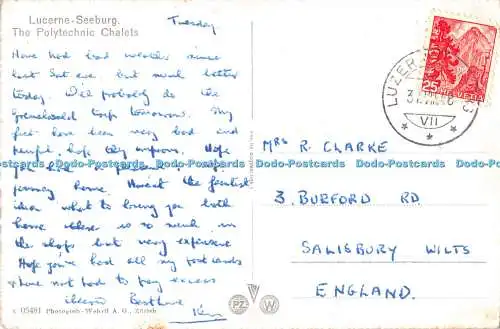 Lucerne-Seeburg.
The Polytechnic Chalets
Tuesday
Have had bad weather since
last Sat eve but much better
today. Will probably do the
Grindelwald trip tomorrow. My
feet have been very bad and
painful, hope they improve. Hope
you had a pleasant
journey home. Haven't the faintest
idea what to bring you both
home there is so much in
the shops but very expensive
Hope you've had all my postcards
& have not had to pay excess
Cheerio Best love
Ken
MRS R. CLARKE
3, BURFORD RD.
SALISBURY WILTS
ENGLAND.
25 HELVETIA
VII
Dodo-Postcards Dodo-Postcards Dodo-Postcards Dodo-Postcards Dodo-Postcards Dodo-Postcards
05481 Photogloh-Wehrli A. G., Zürich
PZ W